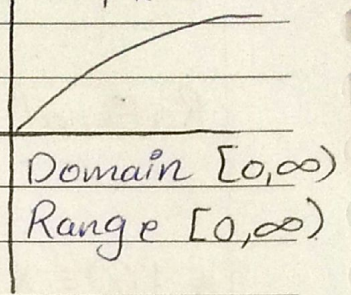 Domain [0,∞)
Range [0,∞)